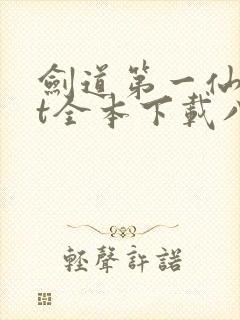 劍道第一仙
t全本下載
輕聲許諾